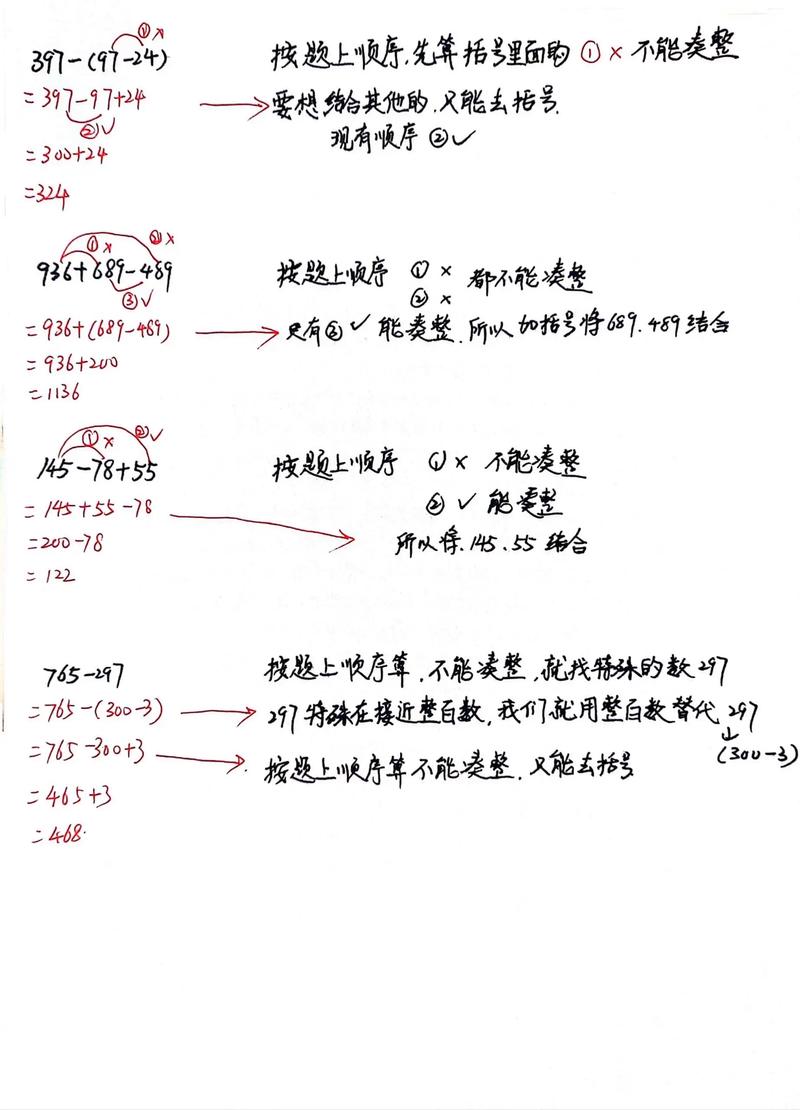 ① ×
397-(97-24) 按题上顺序,先算括号里面的 ① × 不能凑整
=397-97+24 要想结合其他的,只能去括号.
② ✓ 现有顺序 ② ✓
=300+24
=324
① × ② ×
936+689-489 按题上顺序 ① × 都不能凑整
③ ✓ ② ×
=936+(689-489) 只有③ ✓ 能凑整.所以加括号将689.489结合
=936+200
=1136
① × ② ✓
145-78+55 按题上顺序 ① × 不能凑整
=145+55-78 ② ✓ 能凑整
=200-78 所以将.145.55结合
=122
765-297 按题上顺序算,不能凑整,就找特殊的数297
=765-(300-3) 297特殊在接近整百数,我们就用整百数替代 297
↓
(300-3)
=765-300+3 按题上顺序算不能凑整.只能去括号
=465+3
=468.